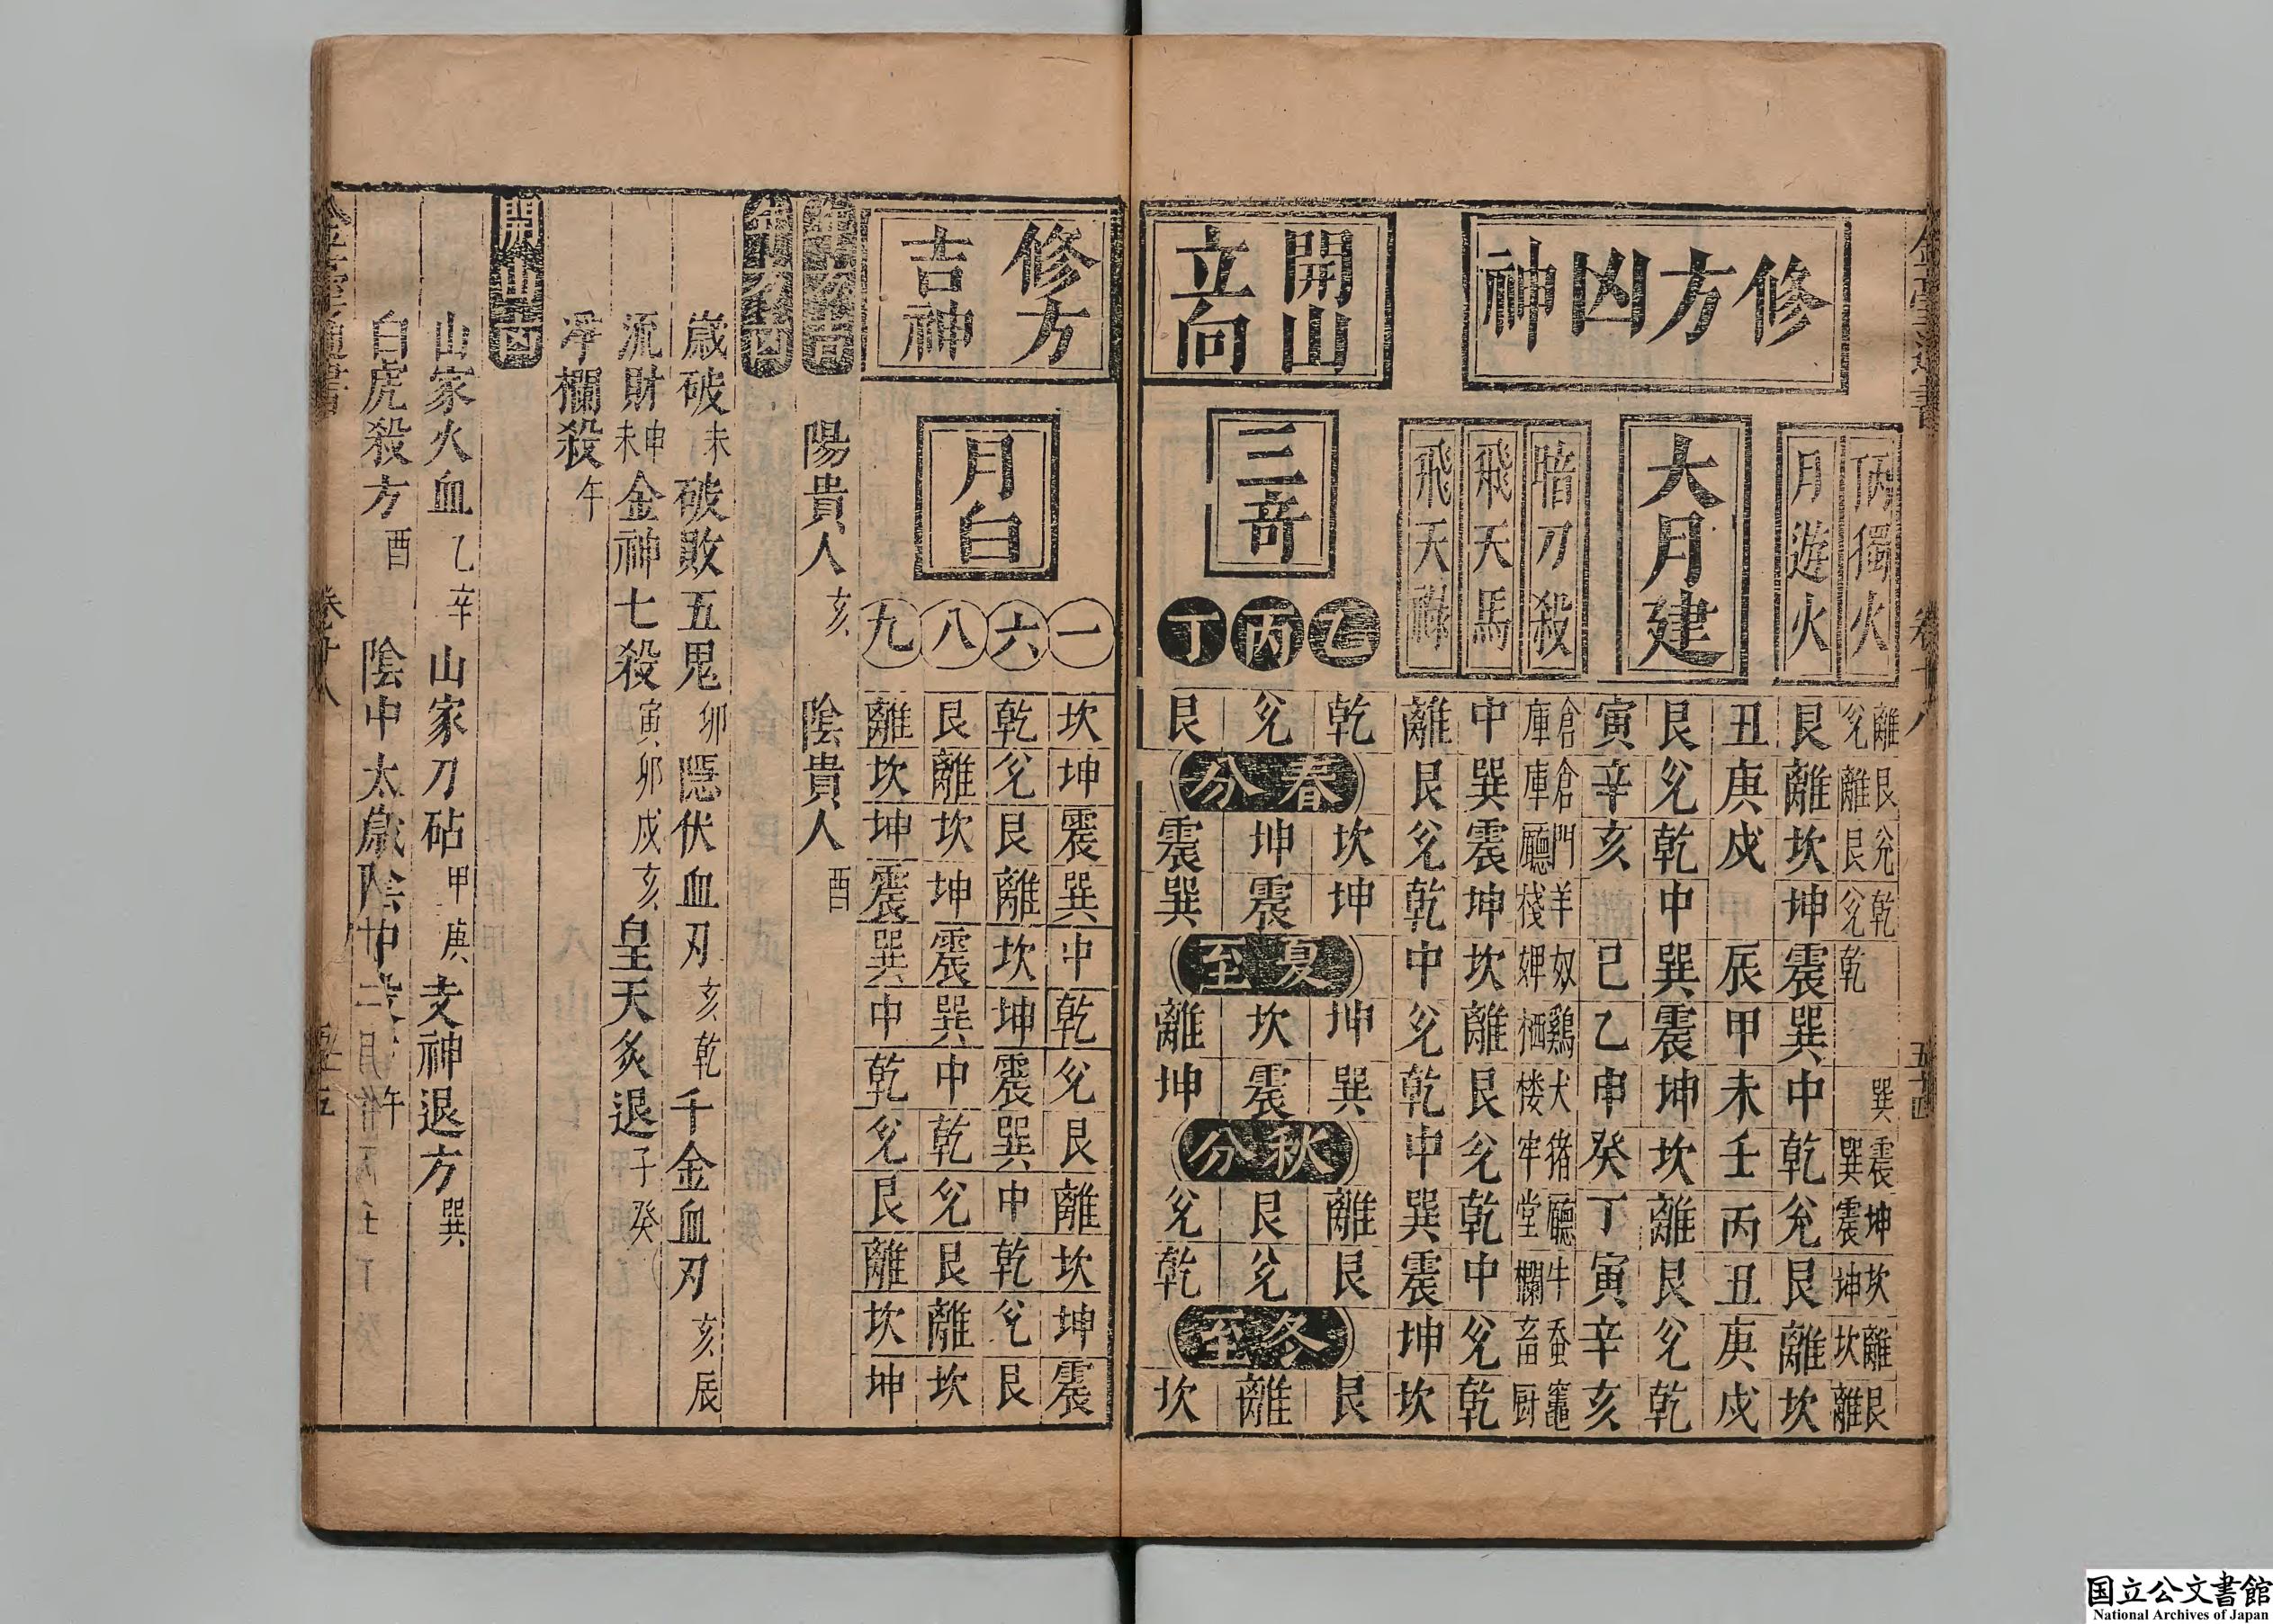 修方凶神
丙獨火
月遊火
離艮兊乾　　巽震坤坎離艮
兊離艮兊乾　　巽震坤坎離
艮離坎坤震巽中乾兊艮離坎
大月建
丑庚戌　辰甲未壬丙丑庚戌
艮兊乾中巽震坤坎離艮兊乾
寅辛亥　巳乙申癸丁寅辛亥
暗刀殺
倉倉門羊奴鷄犬猪廳牛蚕竈
庫庫廳棧婢栖楼牢堂欄畜厨
飛天馬
中巽震坤坎離艮兊乾中兊乾
飛天祿
離艮兊乾中兊乾中巽震坤坎
開山
立向
三奇
乙
乾　坎坤　坤巽　離艮　艮
丙
兊　坤震　坎震　艮兊　離
丁
艮　震巽　離坤　兊乾　坎
春分
夏至
秋分
冬至
五十四
修方
吉神
月白
一
坎坤震巽中乾兊艮離坎坤震
六
乾兊艮離坎坤震巽中乾兊艮
八
艮離坎坤震巽中乾兊艮離坎
九
離坎坤震巽中乾兊艮離坎坤
陽貴人亥　陰貴人酉
歲破未　破敗五鬼卯　隱伏血刃亥乾　千金血刃亥辰
流財申未　金神七殺寅卯戌亥　皇天炙退子癸
淨欄殺午
開山凶
山家火血乙辛　山家刀砧甲庚　支神退方巽
白虎殺方酉　陰中太歲